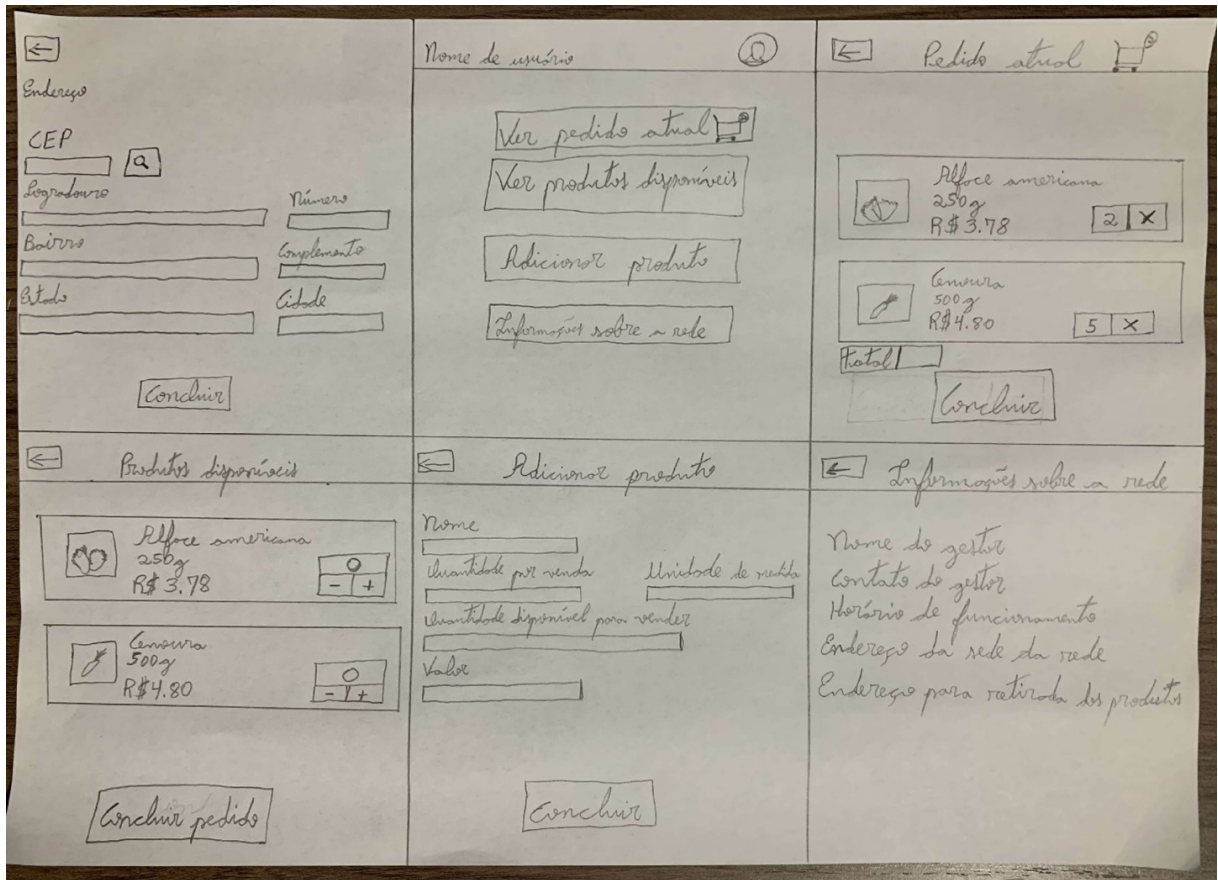 Endereço
CEP
Logradouro
Número
Bairro
Complemento
Estado
Cidade
Concluir
Nome de usuário
Ver pedido atual
Ver produtos disponíveis
Adicionar produto
Informações sobre a rede
Pedido atual
Alface americana
250g
R$ 3.78
2 X
Cenoura
500g
R$4.80
5 X
Total
Concluir
Produtos disponíveis
Alface americana
250g
R$ 3.78
0
- +
Cenoura
500g
R$4.80
0
- +
Concluir pedido
Adicionar produto
Nome
Quantidade por venda
Unidade de medida
Quantidade disponível para vender
Valor
Concluir
Informações sobre a rede
Nome do gestor
Contato do gestor
Horário de funcionamento
Endereço da sede da rede
Endereço para retirada dos produtos